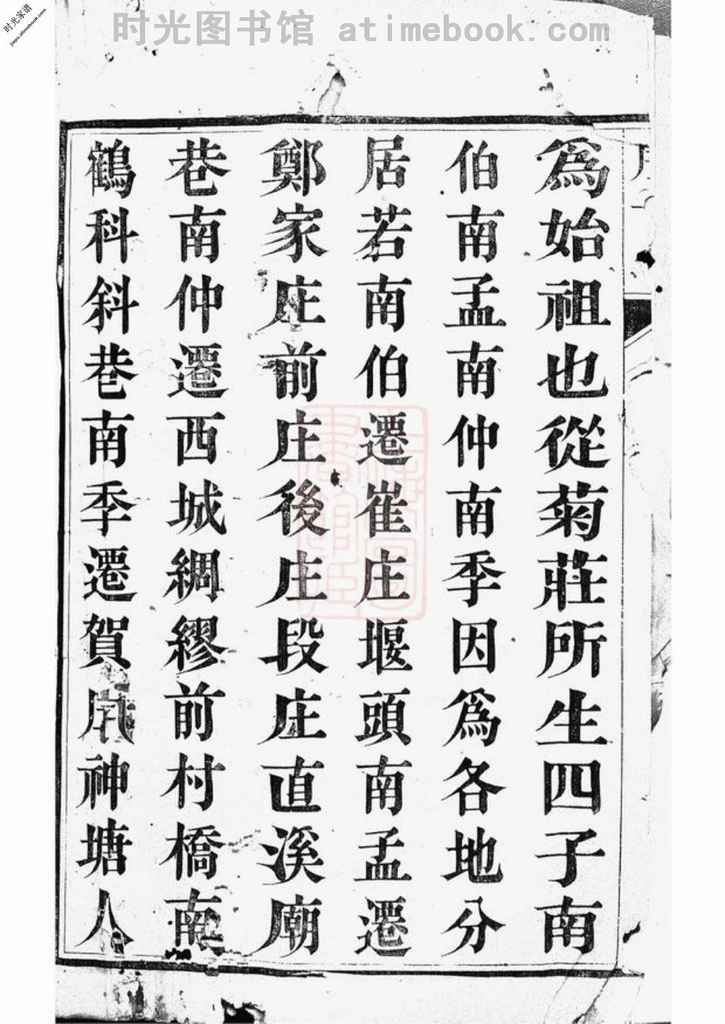 时光图书馆 atimebook.com
时光家谱
為始祖也從菊莊所生四子南
伯南孟南仲南季因為各地分
居若南伯遷崔庄堰頭南孟遷
鄭家庄前庄後庄段庄直溪廟
巷南仲遷西城綢繆前村橋南
鶴科斜巷南季遷賀神塘人